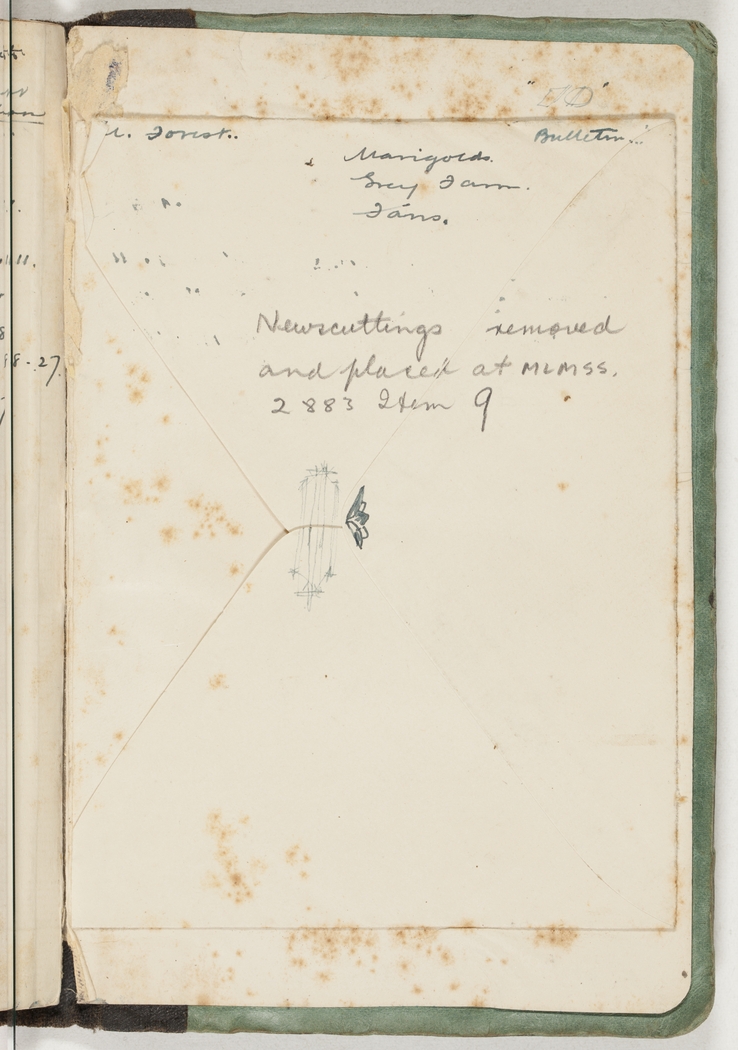 Forest..
Bulletin...
Marigolds.
Grey Fawn.
Fans.
Newscuttings removed
and placed at MLMSS.
2883 Item 9
11.
8
8-27.